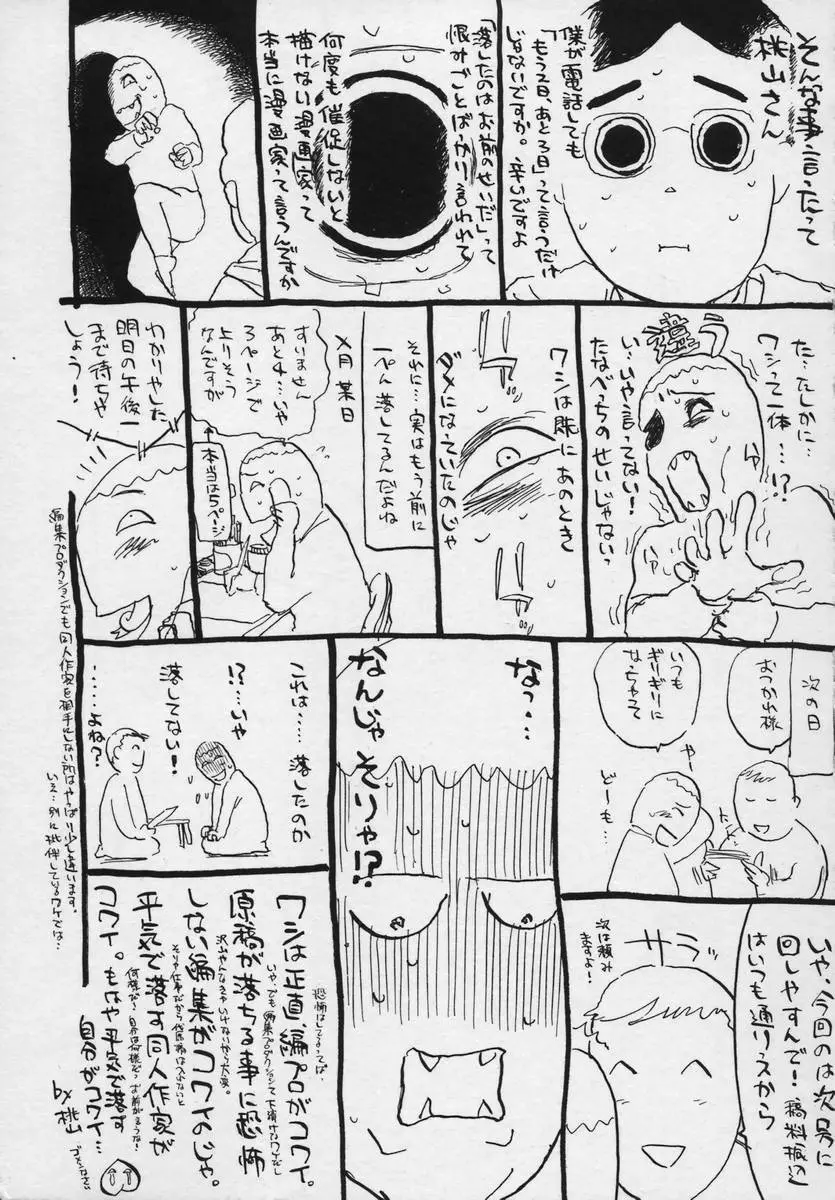 そんな事言ったって
桃山さん
僕が電話しても
「もう2日、あと3日」って言うだけ
じゃないですか。辛いですよ
「落したのはお前のせいだ」って
恨みごとばかり言われて
何度も催促しないと
描けない漫画家って
本当に漫画家って言うんですか
違う
た…たしかに…
ワシって一体…!?
い…いや言ってない!
たなべっちのせいじゃないっ
ワシは既にあのとき
ダメになっていたのじゃ
それに…実はもう前に
一ぺん落してるんだよね
×月某日
すいません
あと4…いや
3ページで
上りそう
なんですが
本当は5ページ
わかりやした
明日の午後一
まで待ちや
しょう!
次の日
おつかれ様
いつも
ギリギリに
なっちゃって
やー
どーも…
いや、今回のは次号に
回しやすんで!稿料振込
はいつも通りっスから
サラッ
次は頼み
ますよ!
なっ…
なんじゃそりゃ!?
これは……落したのか
!?……いや
落してない!
……よね?
ワシは正直、編プロがコワイ。
原稿が落ちる事に恐怖
しない編集がコワイのじゃ。
平気で落す同人作家が
コワイ。もはや平気で落す
自分がコワイ…
by桃山
ゴメンなさい
編集プロダクションでも同人作家を相手にしない所はやっぱり少し違います。
いえ…別に批判しているワケでは…